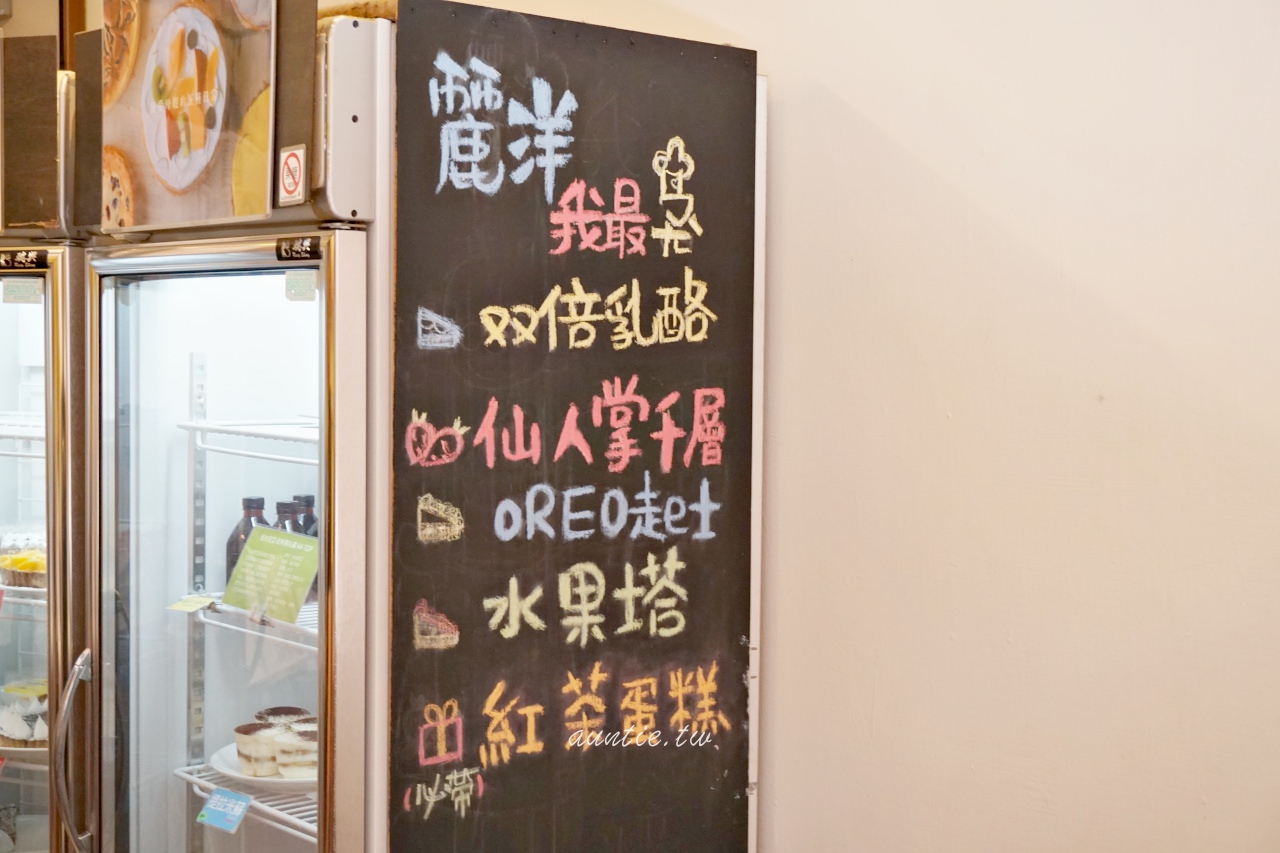 麗洋
我最夯
双倍乳酪
仙人掌千層
OREO起士
水果塔
紅茶蛋糕
(必帶)
auntie.tw
提拉米蘇